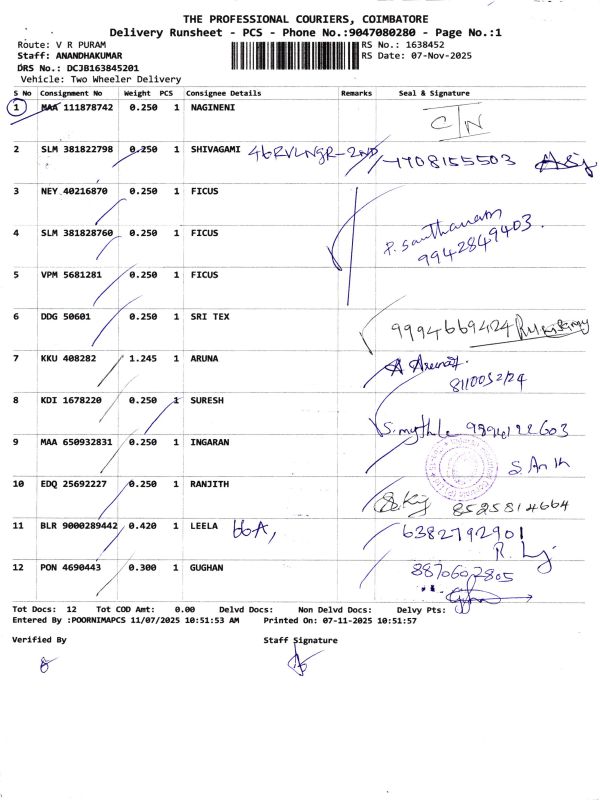 THE PROFESSIONAL COURIERS, COIMBATORE
Delivery Runsheet - PCS - Phone No.:9047080280 - Page No.:1
Route: V R PURAM
RS No.: 1638452
Staff: ANANDHAKUMAR
RS Date: 07-Nov-2025
DRS No.: DCJB163845201
Vehicle: Two Wheeler Delivery
S No Consignment No Weight PCS Consignee Details Remarks Seal & Signature
1 MAA 111878742 0.250 1 NAGINENI C/N
2 SLM 381822798 0.250 1 SHIVAGAMI 46RVLNGR-2ND 1708155503
3 NEY 40216870 0.250 1 FICUS
4 SLM 381828760 0.250 1 FICUS P. Santhanam 9942849403.
5 VPM 5681281 0.250 1 FICUS
6 DDG 50601 0.250 1 SRI TEX 9994669424
7 KKU 408282 1.245 1 ARUNA
8 KDI 1678220 0.250 1 SURESH
9 MAA 650932831 0.250 1 INGARAN
10 EDQ 25692227 0.250 1 RANJITH 8525814664
11 BLR 9000289442 0.420 1 LEELA 66A, 6382792901
12 PON 4690443 0.300 1 GUGHAN 8870602805
Tot Docs: 12 Tot COD Amt: 0.00 Delvd Docs: Non Delvd Docs: Delvy Pts:
Entered By :POORNIMAPCS 11/07/2025 10:51:53 AM Printed On: 07-11-2025 10:51:57
Verified By Staff Signature